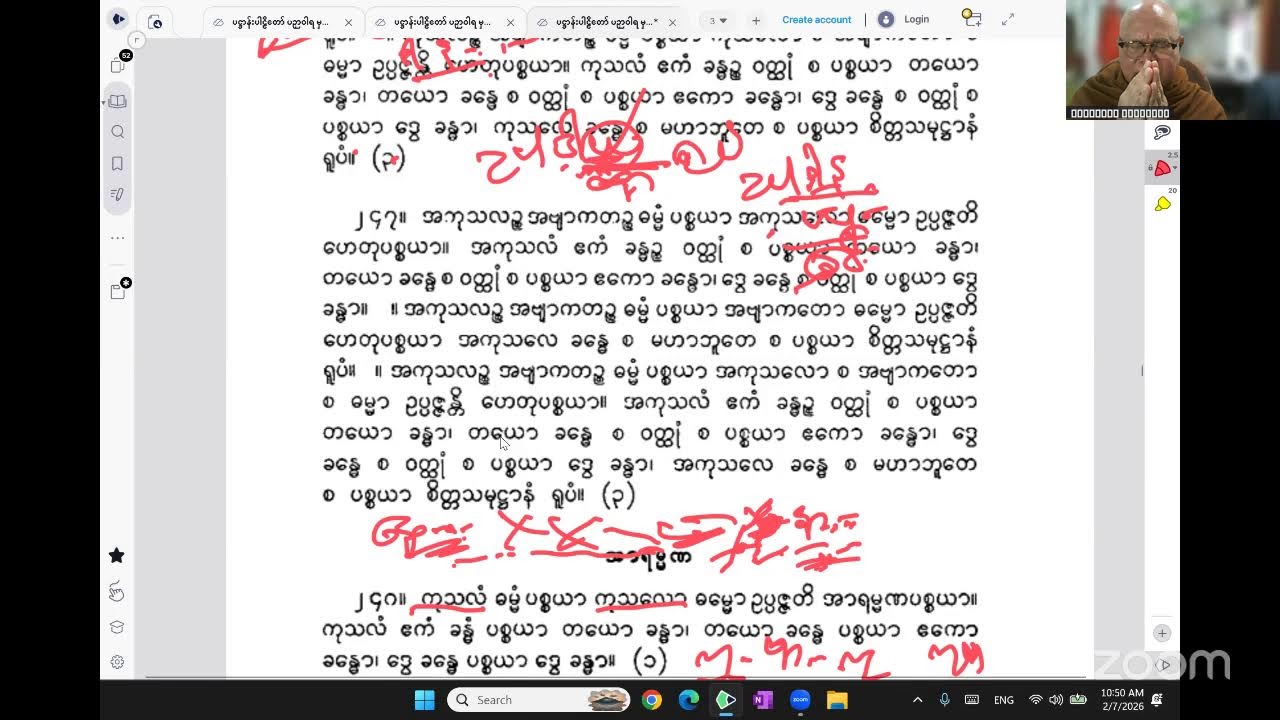 ပဋ္ဌာန်းပါဠိတော် ပညဝါရ မှ...
ပဋ္ဌာန်းပါဠိတော် ပညဝါရ မှ...
ပဋ္ဌာန်းပါဠိတော် ပညဝါရ မှ... *
3
Create account
Login
52
ဓမ္မာ ဥပ္ပဇ္ဇန္တိ ဟေတုပစ္စယာ။ ကုသလံ ဧကံ ခန္ဓဉ္စ ဝတ္ထုံ စ ပစ္စယာ တယော
ခန္ဓာ၊ တယော ခန္ဓေ စ ဝတ္ထုံ စ ပစ္စယာ ဧကော ခန္ဓော၊ ဒွေ ခန္ဓေ စ ဝတ္ထုံ စ
ပစ္စယာ ဒွေ ခန္ဓာ၊ ကုသလေ ခန္ဓေ စ မဟာဘူတေ စ ပစ္စယာ စိတ္တသမုဋ္ဌာနံ
ရူပံ။ (၃)
၂၄၇။ အကုသလဉ္စ အဗျာကတဉ္စ ဓမ္မံ ပစ္စယာ အကုသလော ဓမ္မော ဥပ္ပဇ္ဇတိ
ဟေတုပစ္စယာ။ အကုသလံ ဧကံ ခန္ဓဉ္စ ဝတ္ထုံ စ ပစ္စယာ တယော ခန္ဓာ၊
တယော ခန္ဓေ စ ဝတ္ထုံ စ ပစ္စယာ ဧကော ခန္ဓော၊ ဒွေ ခန္ဓေ စ ဝတ္ထုံ စ ပစ္စယာ ဒွေ
ခန္ဓာ။ ။ အကုသလဉ္စ အဗျာကတဉ္စ ဓမ္မံ ပစ္စယာ အဗျာကတော ဓမ္မော ဥပ္ပဇ္ဇတိ
ဟေတုပစ္စယာ အကုသလေ ခန္ဓေ စ မဟာဘူတေ စ ပစ္စယာ စိတ္တသမုဋ္ဌာနံ
ရူပံ။ ။ အကုသလဉ္စ အဗျာကတဉ္စ ဓမ္မံ ပစ္စယာ အကုသလော စ အဗျာကတော
စ ဓမ္မာ ဥပ္ပဇ္ဇန္တိ ဟေတုပစ္စယာ။ အကုသလံ ဧကံ ခန္ဓဉ္စ ဝတ္ထုံ စ ပစ္စယာ
တယော ခန္ဓာ၊ တယော ခန္ဓေ စ ဝတ္ထုံ စ ပစ္စယာ ဧကော ခန္ဓော၊ ဒွေ
ခန္ဓေ စ ဝတ္ထုံ စ ပစ္စယာ ဒွေ ခန္ဓာ၊ အကုသလေ ခန္ဓေ စ မဟာဘူတေ
စ ပစ္စယာ စိတ္တသမုဋ္ဌာနံ ရူပံ။ (၃)
အာရမ္မဏ
၂၄၈။ ကုသလံ ဓမ္မံ ပစ္စယာ ကုသလော ဓမ္မော ဥပ္ပဇ္ဇတိ အာရမ္မဏပစ္စယာ။
ကုသလံ ဧကံ ခန္ဓံ ပစ္စယာ တယော ခန္ဓာ၊ တယော ခန္ဓေ ပစ္စယာ ဧကော
ခန္ဓော၊ ဒွေ ခန္ဓေ ပစ္စယာ ဒွေ ခန္ဓာ။ (၁)
2.5
20
zoom
Search
ENG
10:50 AM
2/7/2026